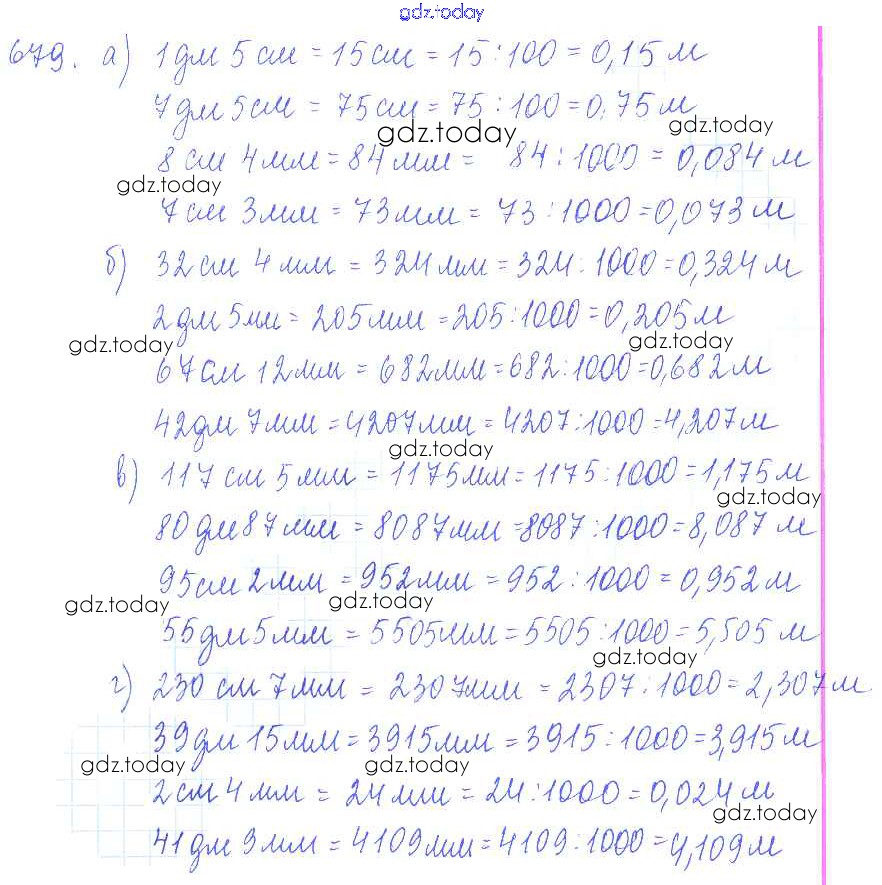 gdz.today
679. а) 1 дм 5 см = 15 см = 15 : 100 = 0,15 м
7 дм 5 см = 75 см = 75 : 100 = 0,75 м
gdz.today gdz.today
8 см 4 мм = 84 мм = 84 : 1000 = 0,084 м
gdz.today
7 см 3 мм = 73 мм = 73 : 1000 = 0,073 м
б) 32 см 4 мм = 324 мм = 324 : 1000 = 0,324 м
2 дм 5 мм = 205 мм = 205 : 1000 = 0,205 м
gdz.today gdz.today
67 см 12 мм = 682 мм = 682 : 1000 = 0,682 м
42 дм 7 мм = 4207 мм = 4207 : 1000 = 4,207 м
gdz.today
в) 117 см 5 мм = 1175 мм = 1175 : 1000 = 1,175 м
gdz.today
80 дм 87 мм = 8087 мм = 8087 : 1000 = 8,087 м
95 см 2 мм = 952 мм = 952 : 1000 = 0,952 м
gdz.today gdz.today
55 дм 5 мм = 5505 мм = 5505 : 1000 = 5,505 м
gdz.today
г) 230 см 7 мм = 2307 мм = 2307 : 1000 = 2,307 м
39 дм 15 мм = 3915 мм = 3915 : 1000 = 3,915 м
gdz.today gdz.today
2 см 4 мм = 24 мм = 24 : 1000 = 0,024 м
gdz.today
41 дм 9 мм = 4109 мм = 4109 : 1000 = 4,109 м